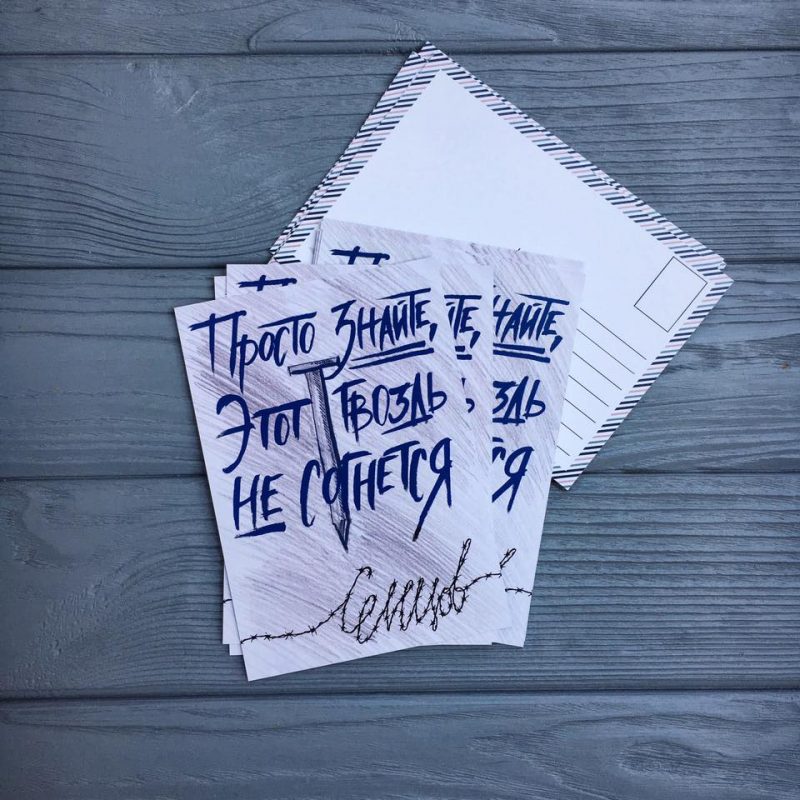 Просто знайте,
Этот гвоздь
не согнется
Сенцов
йте,
ь
найте,
здь
я